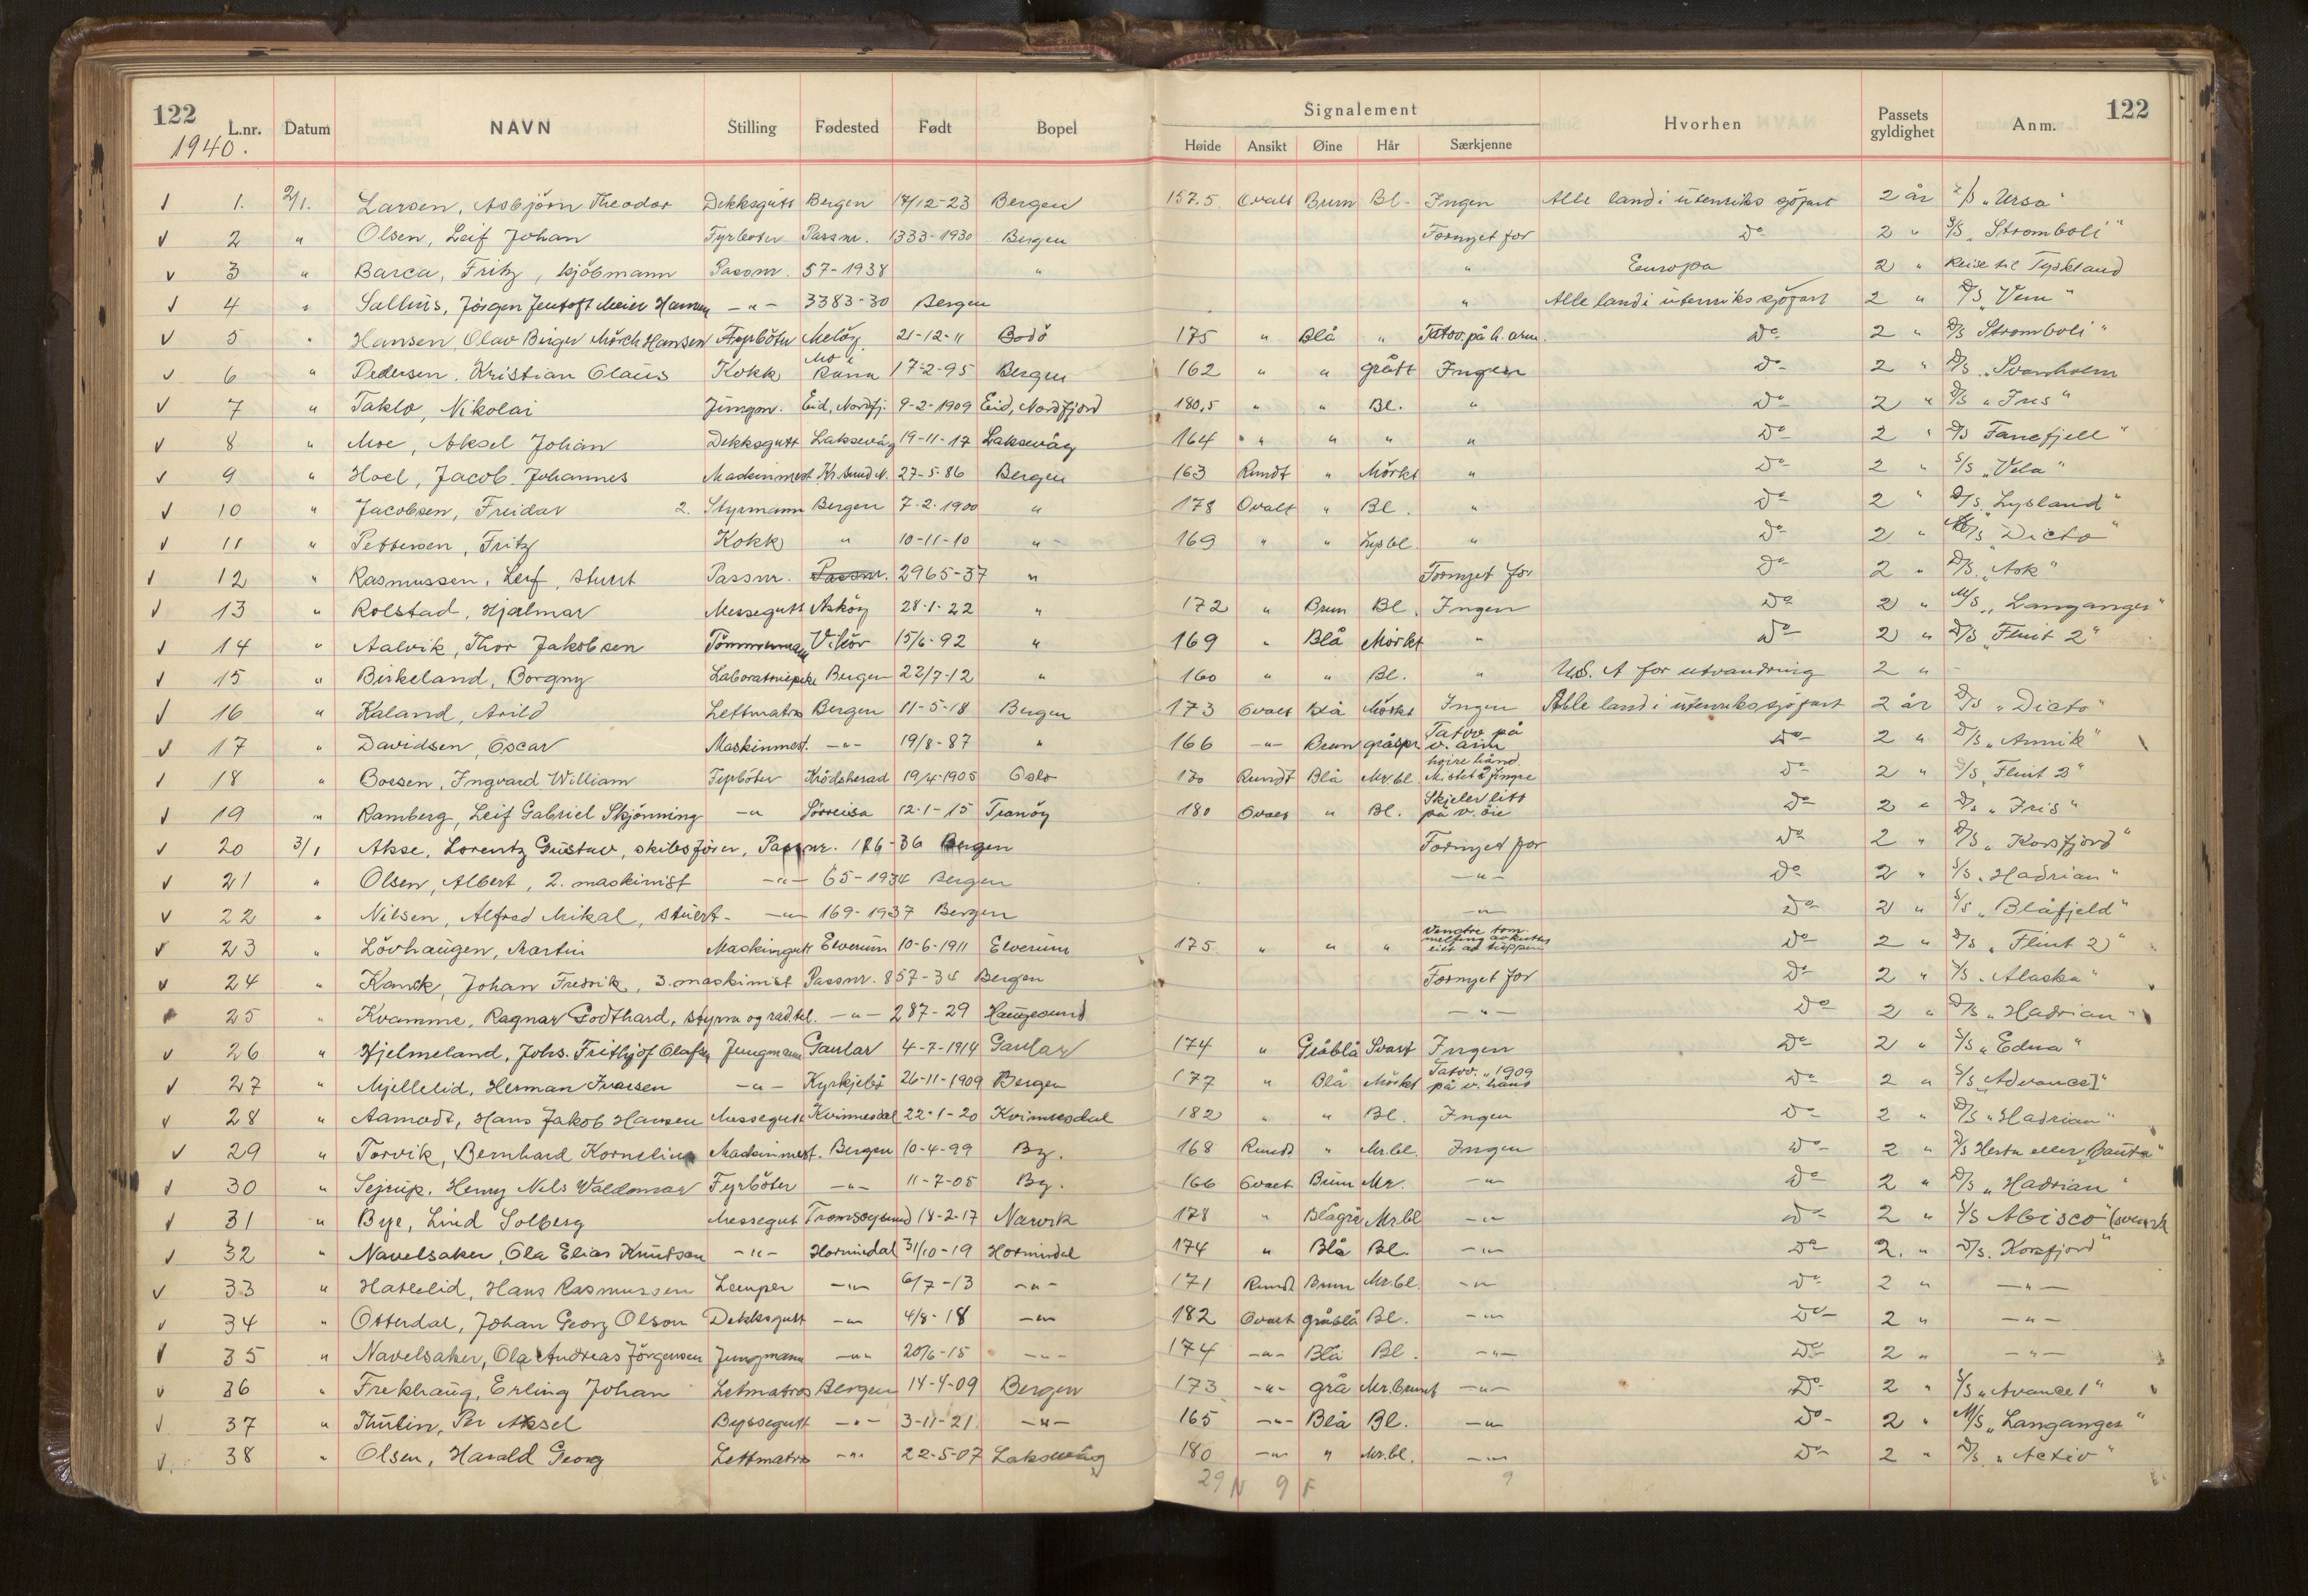 122 122
Signalement
L.nr. Datum NAVN Stilling Fødested Født Bopel Høide Ansikt Øine Hår Særkjenne Hvorhen Passets gyldighet Anm.
1940.
1. 2/1. Larsen, Asbjörn Theodor Dekksgutt Bergen 17/12-23 Bergen 157.5 Ovalt Brun Bl. Ingen Alle land i utenriks sjöfart 2 år S/S „Ursa"
2 " Olsen, Leif Johan Fyrböter Passnr. 1333-1930 Bergen Fornyet for Do 2 " S/S „Stromboli"
3 " Barca, Fritz, kjöbmann Passnr. 57-1938 " " Europa 2 " Reise til Tyskland
4 " Sallius, Jörgen Jentoft Meier Hansen -"- 3383-30 Bergen " Alle land i utenriks sjöfart 2 " D/S „Vem"
5 " Hansen, Olav Birger Mörch Hansen Fyrböter Melöy 21-12-11 Bodö 175 " Blå " Tatov. på h. arm. Do 2 " D/S Stromboli"
6 " Pedersen, Kristian Olaus Kokk Mo i Rana 17-2-95 Bergen 162 " " grått Ingen Do 2 " D/S „Svanholm
7 " Taklo, Nikolai Jungm. Eid, Nordfj. 9-2-1909 Eid, Nordfjord 180,5 " " Bl. " Do 2 " D/S „Iris"
8 " Moe, Aksel Johan Dekksgutt Laksevåg 19-11-17 Laksevåg 164 " " " " Do 2 " D/S Fanefjell"
9 " Hoel, Jacob Johannes Maskinmest Kr.sund N. 27-5-86 Bergen 163 Rundt " Mörkt " Do 2 " S/S „Vela"
10 " Jacobsen, Freidar 2. Styrmann Bergen 7-2-1900 " 178 Ovalt " Bl. " Do 2 " D/S „Lysland"
11 " Pettersen, Fritz Kokk " 10-11-10 " 169 " " Lysbl. " Do 2 " M/S „Dicto"
12 " Rasmussen, Leif, stuert Passnr. Passnr. 2965-37 " Fornyet for Do 2 " D/S. „Ask"
13 " Rolstad, Hjalmar Messegutt Asköy 28-1-22 " 172 " Brun Bl. Ingen Do 2 " M/S „Langanger"
14 " Aalvik, Thor Jakobsen Tömmermann Vikör 15/6-92 " 169 " Blå Mörkt " Do 2 " D/S „Flint 2"
15 " Birkeland, Borgny Bergen 22/7-12 " 160 " " Bl. " U.S.A for utvandring 2 " -
16 " Kaland, Arild Lettmatros Bergen 11-5-18 Bergen 173 Ovalt Blå Mörkt Ingen Alle land i utenriks sjöfart 2 år D/S „Dicto"
17 " Davidsen, Oscar Maskinmest. -"- 19/8-87 " 166 -"- Brun gråspr. Tatov på v. arm Do 2 " D/S „Annik"
18 " Boesen, Ingvard William Fyrböter Krödsherad 19/4-1905 Oslo 170 Rundt Blå Mr.bl. höire hånd. Mistet 2 fingre Do 2 " D/S „Flint 2"
19 " Ramberg, Leif Gabriel Skjönning -" Sörreisa 12-1-15 Tranöy 180 Ovalt " Bl. Skjeler litt på v. öie Do 2 " D/s „Iris"
20 3/1 Akse, Lorentz Gustav, skibsförer, Passnr. 186-36 Bergen Fornyet for Do 2 " D/S „Korsfjord"
21 " Olsen, Albert, 2. maskinist -"- 65-1934 Bergen -"- Do 2 " S/S „Hadrian"
22 " Nilsen, Alfred Mikal, stuert- -"- 169-1937 Bergen -"- Do 2 " S/S „Blåfjeld"
23 " Lövhaugen, Martin Maskingutt Elverum 10-6-1911 Elverum 175 " " " Venstre tom. Do 2 " D/S „Flint 2"
24 " Kanck, Johan Fredrik, 3. maskinist Passnr. 857-34 Bergen Fornyet for Do 2 " S/S „Alaska"
25 " Kvamme, Ragnar Godthard, styrm og radtel. -"- 287-29 Haugesund -"- Do 2 " D/S „Hadrian"
26 " Hjelmeland, Johs. Frithjof Olafsen Jungmann Gaular 4-7-1914 Gaular 174 " Gråblå Svart Ingen Do 2 " S/S „Edna"
27 " Mjellelid, Herman Ivarsen -"- Kyrkjebö 26-11-1909 Bergen 177 " Blå Mörkt Tatov. „1909 på v. hånd Do 2 " S/S „Advance I"
28 " Aamodt, Hans Jakob Hansen Messegutt Kvinnesdal 22-1-20 Kvinnesdal 182 " " Bl. Ingen Do 2 " D/S „Hadrian"
29 " Torvik, Bernhard Kornelius Maskinmest. Bergen 10-4-99 By. 168 Rundt " Mr.bl. Ingen Do 2 " D/S Herta eller „Bauta"
30 " Sejrup, Henry Nils Waldemar Fyrböter -"- 11-7-05 By. 166 Ovalt Brun Mr. -"- Do 2 " D/S „Hadrian"
31 " Bye, Lind Solberg Messegut Tromsöysund 18-2-17 Narvik 178 " Blågrå Mr.bl -"- Do 2 " S/S Abisco" (svensk
32 " Navelsaker, Ola Elias Knutson -"- Hornindal 31/10-19 Hornindal 174 " Blå Bl. -"- Do 2. " D/S. Korsfjord"
33 " Hatlelid, Hans Rasmussen Lemper -"- 6/7-13 -"- 171 Rundt Brun Mr.bl. -"- Do 2 " -"-
34 " Otterdal, Johan Georg Olson Dekksgutt -"- 4/8-18 -"- 182 Ovalt gråblå Bl. -"- Do 2 " -"-
35 " Navelsaker, Ola Andreas Jörgensen Jungmann -"- 20/6-15 -"- 174 -"- Blå Bl. -"- Do 2 " -"-
36 " Frekhaug, Erling Johan Letmatros Bergen 14-4-09 Bergen 173 -"- grå Mr.brunt -"- Do 2 " S/S „Avance 1"
37 " Thulin, Per Aksel Byssegutt -"- 3-11-21 -"- 165 -"- Blå Bl. -"- Do 2 " M/S „Langanger"
38 " Olsen, Harald Georg Lettmatros -"- 22-5-07 Laksevåg 180 -"- " Mr.bl. -"- Do 2 " D/S „Activ"
29 N 9 F 9